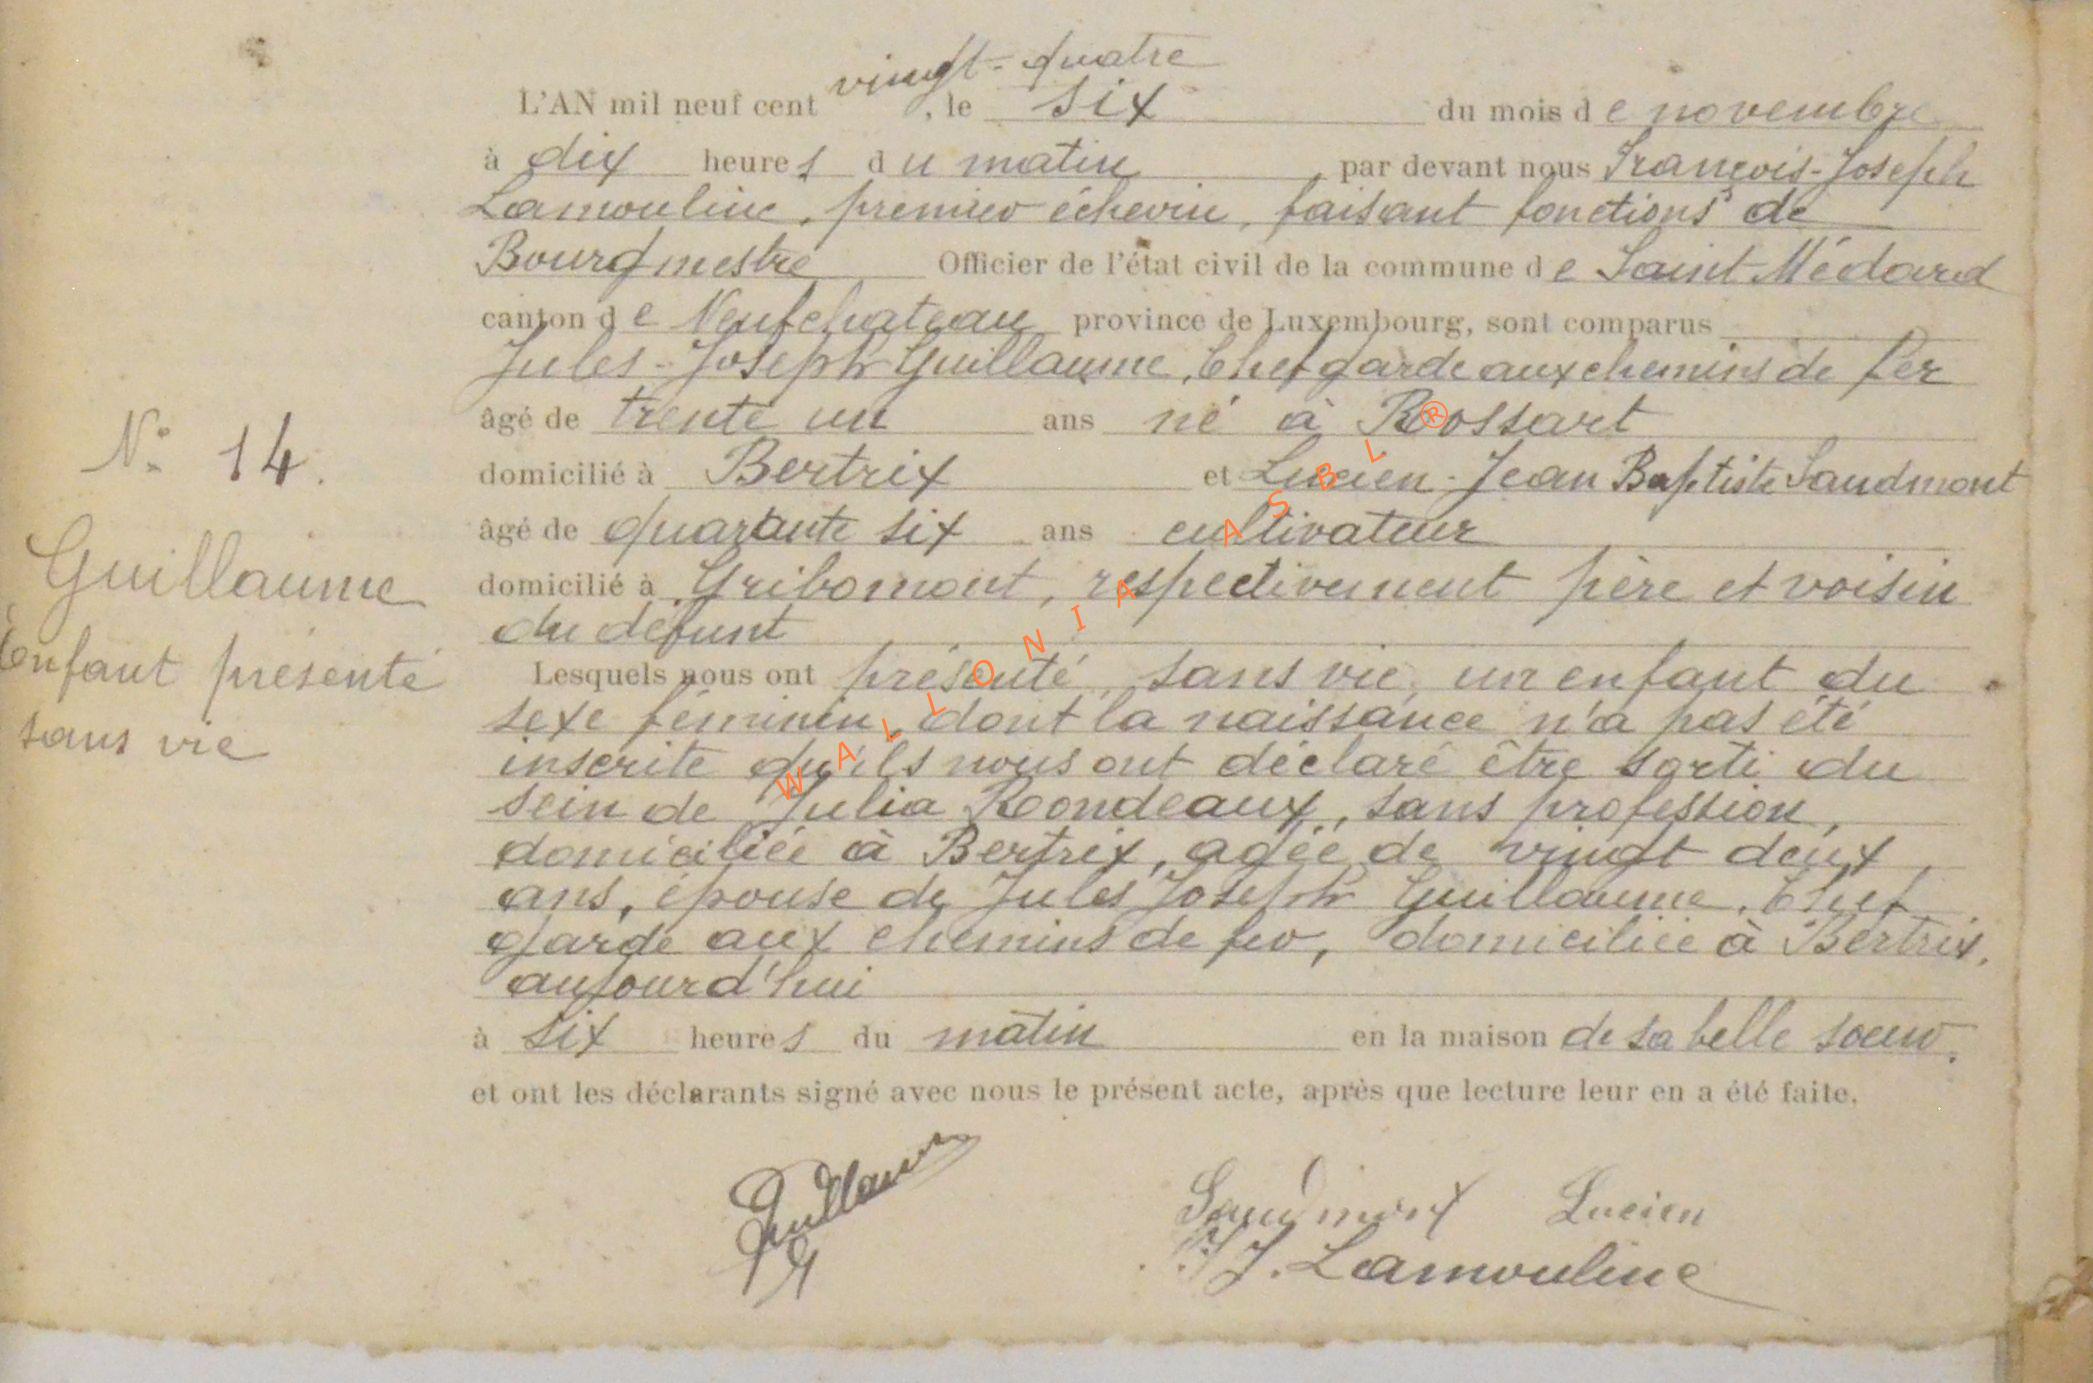 vingt-quatre
L'AN mil neuf cent , le six du mois de novembre
à dix heures du matin par devant nous François-Joseph
Lamouline, premier échevin, faisant fonctions de
Bourgmestre Officier de l'état civil de la commune de Saint-Médard
canton de Neufchateau province de Luxembourg, sont comparus
Jules-Joseph Guillaume, Chef garde aux chemins de fer
âgé de trente un ans né à Rossart
N° 14.
domicilié à Bertrix et Lucien-Jean Baptiste Saudmont
âgé de quarante six ans cultivateur
Guillaume
domicilié à Gribomont, respectivement père et voisin
du défunt
Enfant présenté
Lesquels nous ont présenté, sans vie, un enfant du
sexe féminin, dont la naissance n'a pas été
sans vie
inscrite qu'ils nous ont déclaré être sorti du
sein de Julia Rondeaux, sans profession,
domiciliée à Bertrix, agée de vingt deux
ans, épouse de Jules Joseph Guillaume, Chef
garde aux chemins de fer, domiciliée à Bertrix,
aujourd'hui
à six heures du matin en la maison de sa belle soeur.
et ont les déclarants signé avec nous le présent acte, après que lecture leur en a été faite.
Guillaume
Saudmont Lucien
J. Lamouline
WALLONIA ASBL ®